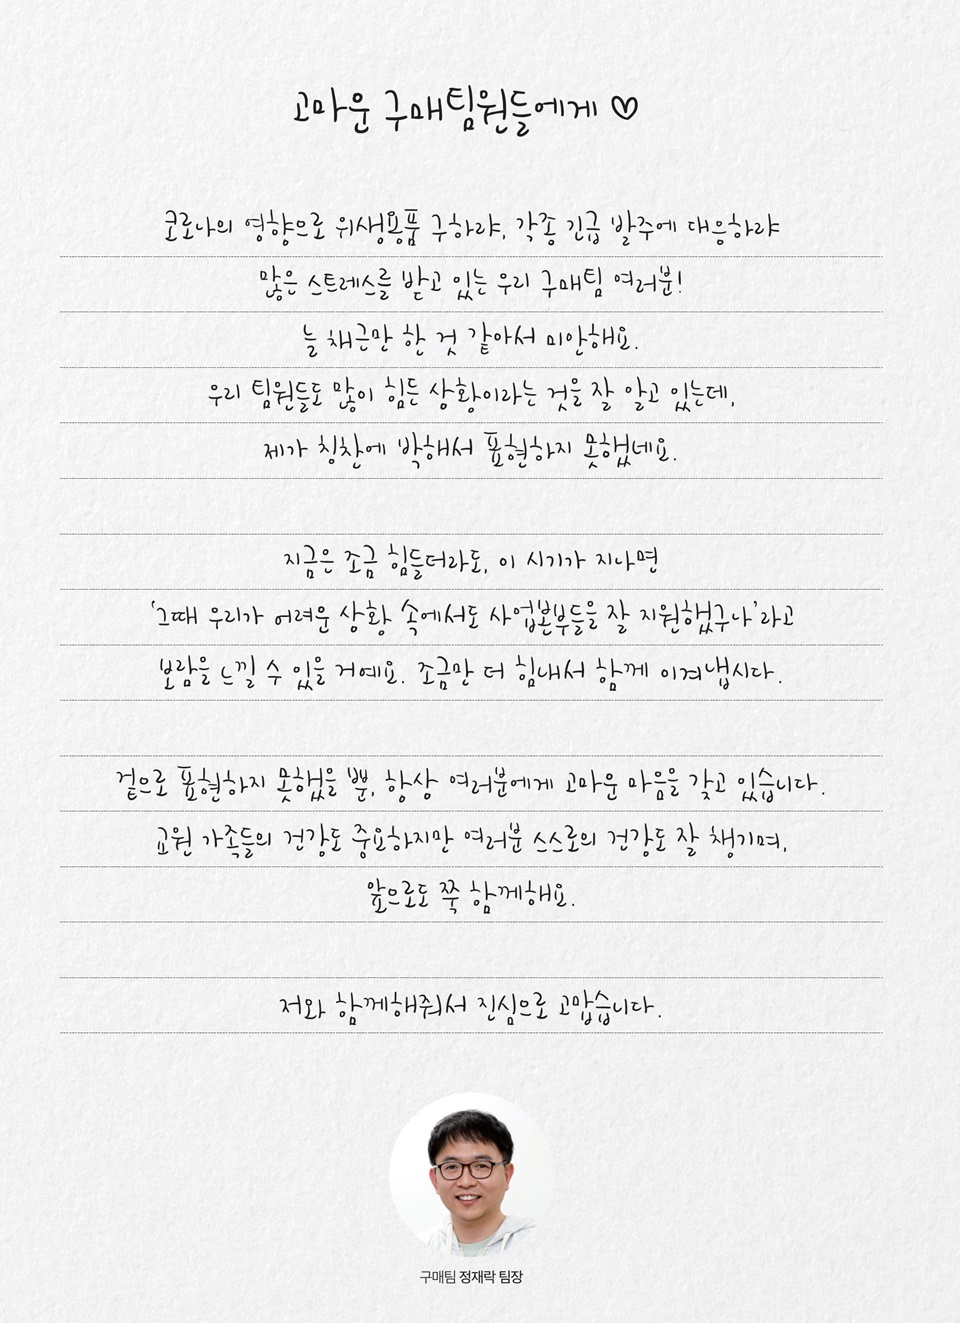 고마운 구매팀원들에게 ♡
코로나의 영향으로 위생용품 구하랴, 각종 긴급 발주에 대응하랴
많은 스트레스를 받고 있는 우리 구매팀 여러분!
늘 채근만 한 것 같아서 미안해요.
우리 팀원들도 많이 힘든 상황이라는 것을 잘 알고 있는데,
제가 칭찬에 박해서 표현하지 못했네요.
지금은 조금 힘들더라도, 이 시기가 지나면
'그때 우리가 어려운 상황 속에서도 사업본부들을 잘 지원했구나'라고
보람을 느낄 수 있을 거예요. 조금만 더 힘내서 함께 이겨냅시다.
겉으로 표현하지 못했을 뿐, 항상 여러분에게 고마운 마음을 갖고 있습니다.
교원 가족들의 건강도 중요하지만 여러분 스스로의 건강도 잘 챙기며,
앞으로도 쭉 함께해요.
저와 함께해줘서 진심으로 고맙습니다.
구매팀 정재락 팀장